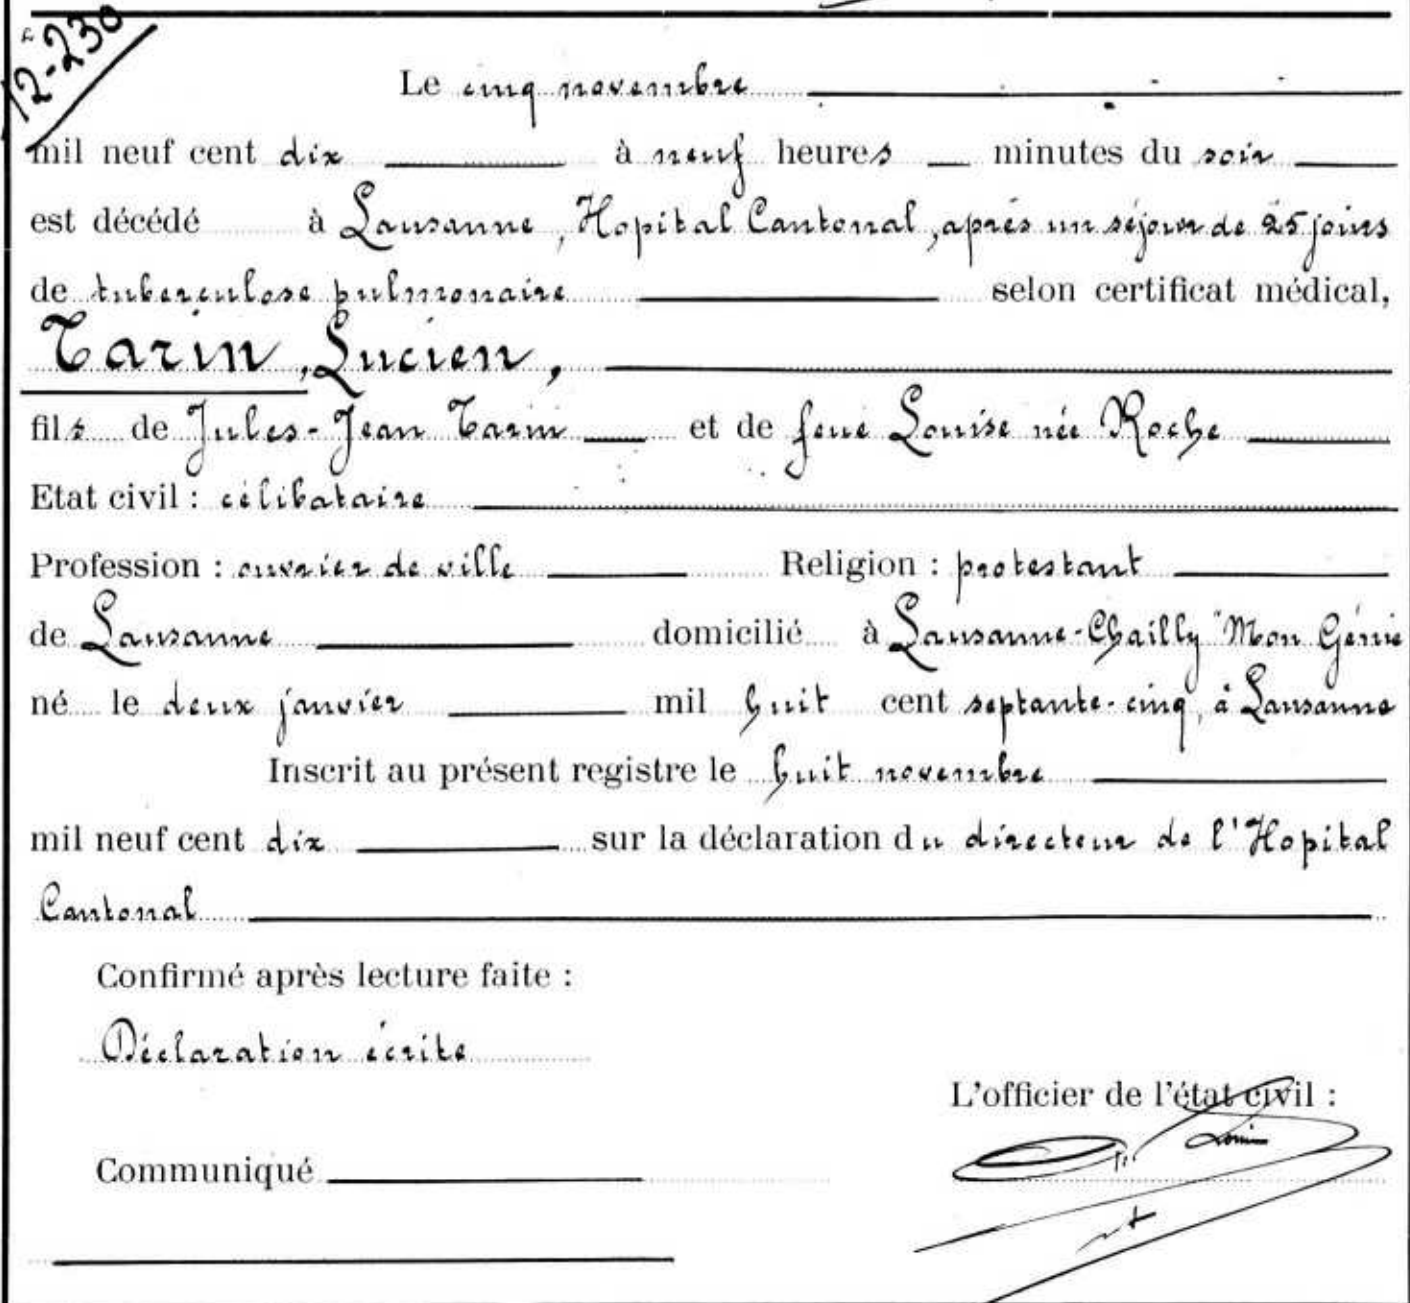 12-230
Le cinq novembre
mil neuf cent dix à neuf heures minutes du soir
est décédé à Lausanne, Hopital Cantonal, après un séjour de 25 jours
de tuberculose pulmonaire selon certificat médical,
Tarin, Lucien,
fils de Jules-Jean Tarin et de feue Louise née Roche
Etat civil : célibataire
Profession : ouvrier de ville Religion : protestant
de Lausanne domicilié à Lausanne-Chailly "Mon Génie
né le deux janvier mil huit cent septante-cinq, à Lausanne
Inscrit au présent registre le huit novembre
mil neuf cent dix sur la déclaration du directeur de l'Hopital
Cantonal
Confirmé après lecture faite :
Déclaration écrite
L'officier de l'état civil :
Communiqué